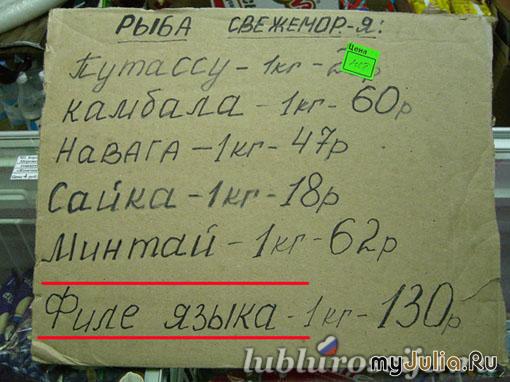 РЫБА СВЕЖЕМОР-Я:
Путассу - 1кг -
Цена
камбала - 1кг - 60р
НАВАГА - 1кг - 47р
Сайка - 1кг - 18р
Минтай - 1кг - 62р
Филе языка - 1кг - 130р
lublurossiju
myJulia.Ru